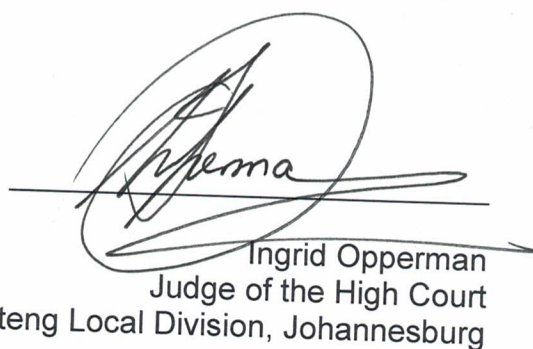 Opperma
Ingrid Opperman
Judge of the High Court
teng Local Division, Johannesburg